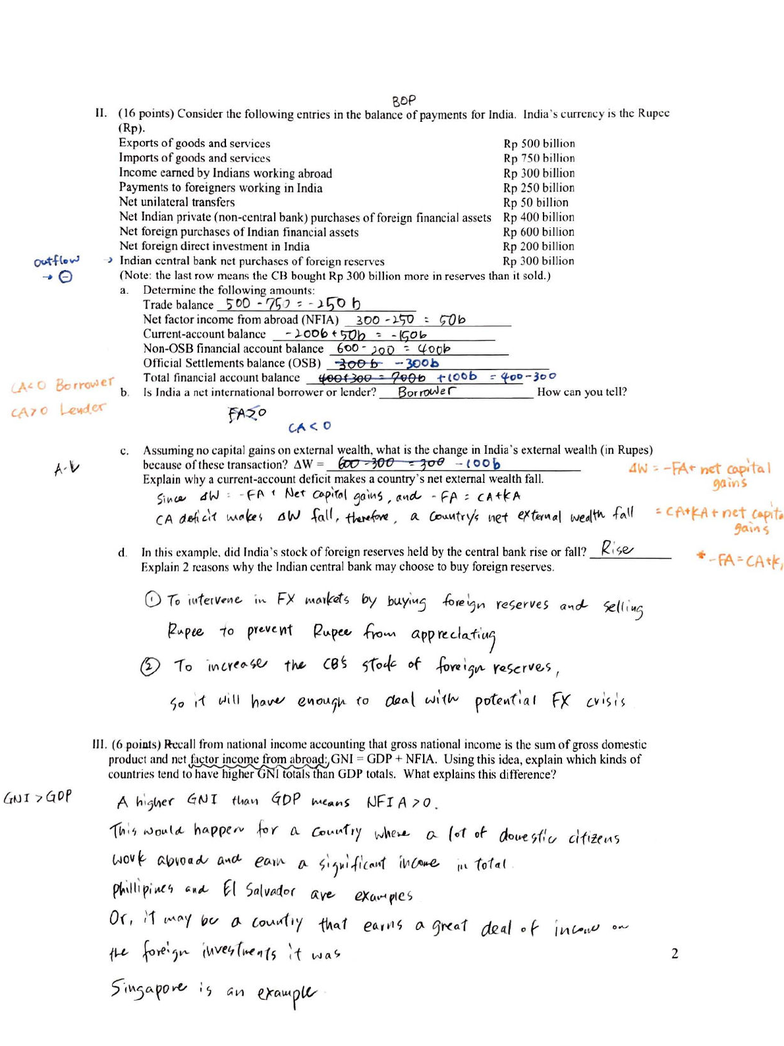 BOP
II. (16 points) Consider the following entries in the balance of payments for India. India's currency is the Rupee
(Rp).
Exports of goods and services Rp 500 billion
Imports of goods and services Rp 750 billion
Income earned by Indians working abroad Rp 300 billion
Payments to foreigners working in India Rp 250 billion
Net unilateral transfers Rp 50 billion
Net Indian private (non-central bank) purchases of foreign financial assets Rp 400 billion
Net foreign purchases of Indian financial assets Rp 600 billion
Net foreign direct investment in India Rp 200 billion
outflow → Indian central bank net purchases of foreign reserves Rp 300 billion
→ ⊖ (Note: the last row means the CB bought Rp 300 billion more in reserves than it sold.)
a. Determine the following amounts:
Trade balance 500 - 750 = -250 b
Net factor income from abroad (NFIA) 300 - 250 = 50b
Current-account balance -200b + 50b = -150b
Non-OSB financial account balance 600 - 200 = 400b
Official Settlements balance (OSB) 300 b -300b
Total financial account balance 400+300 = 700b +100b = 400-300
CA<0 Borrower b. Is India a net international borrower or lender? Borrower How can you tell?
CA>0 Lender
FA>0
CA < 0
c. Assuming no capital gains on external wealth, what is the change in India's external wealth (in Rupes)
A-L because of these transaction? ΔW = 600-300 = 300 -100b
ΔW = -FA + net capital gains
Explain why a current-account deficit makes a country's net external wealth fall.
Since ΔW = -FA + Net Capital gains, and -FA = CA+KA
CA deficit makes ΔW fall, therefore, a country's net external wealth fall
= CA+KA + net capital gains
d. In this example, did India's stock of foreign reserves held by the central bank rise or fall? Rise
* -FA = CA+K
Explain 2 reasons why the Indian central bank may choose to buy foreign reserves.
① To intervene in FX markets by buying foreign reserves and selling
Rupee to prevent Rupee from appreciating
② To increase the CB's stock of foreign reserves,
so it will have enough to deal with potential FX crisis
III. (6 points) Recall from national income accounting that gross national income is the sum of gross domestic
product and net factor income from abroad: GNI = GDP + NFIA. Using this idea, explain which kinds of
countries tend to have higher GNI totals than GDP totals. What explains this difference?
GNI > GDP A higher GNI than GDP means NFIA>0.
This would happen for a country where a lot of domestic citizens
work abroad and earn a significant income in total.
Phillipines and El Salvador are examples
Or, it may be a country that earns a great deal of income on
the foreign investments it was
Singapore is an example.
2